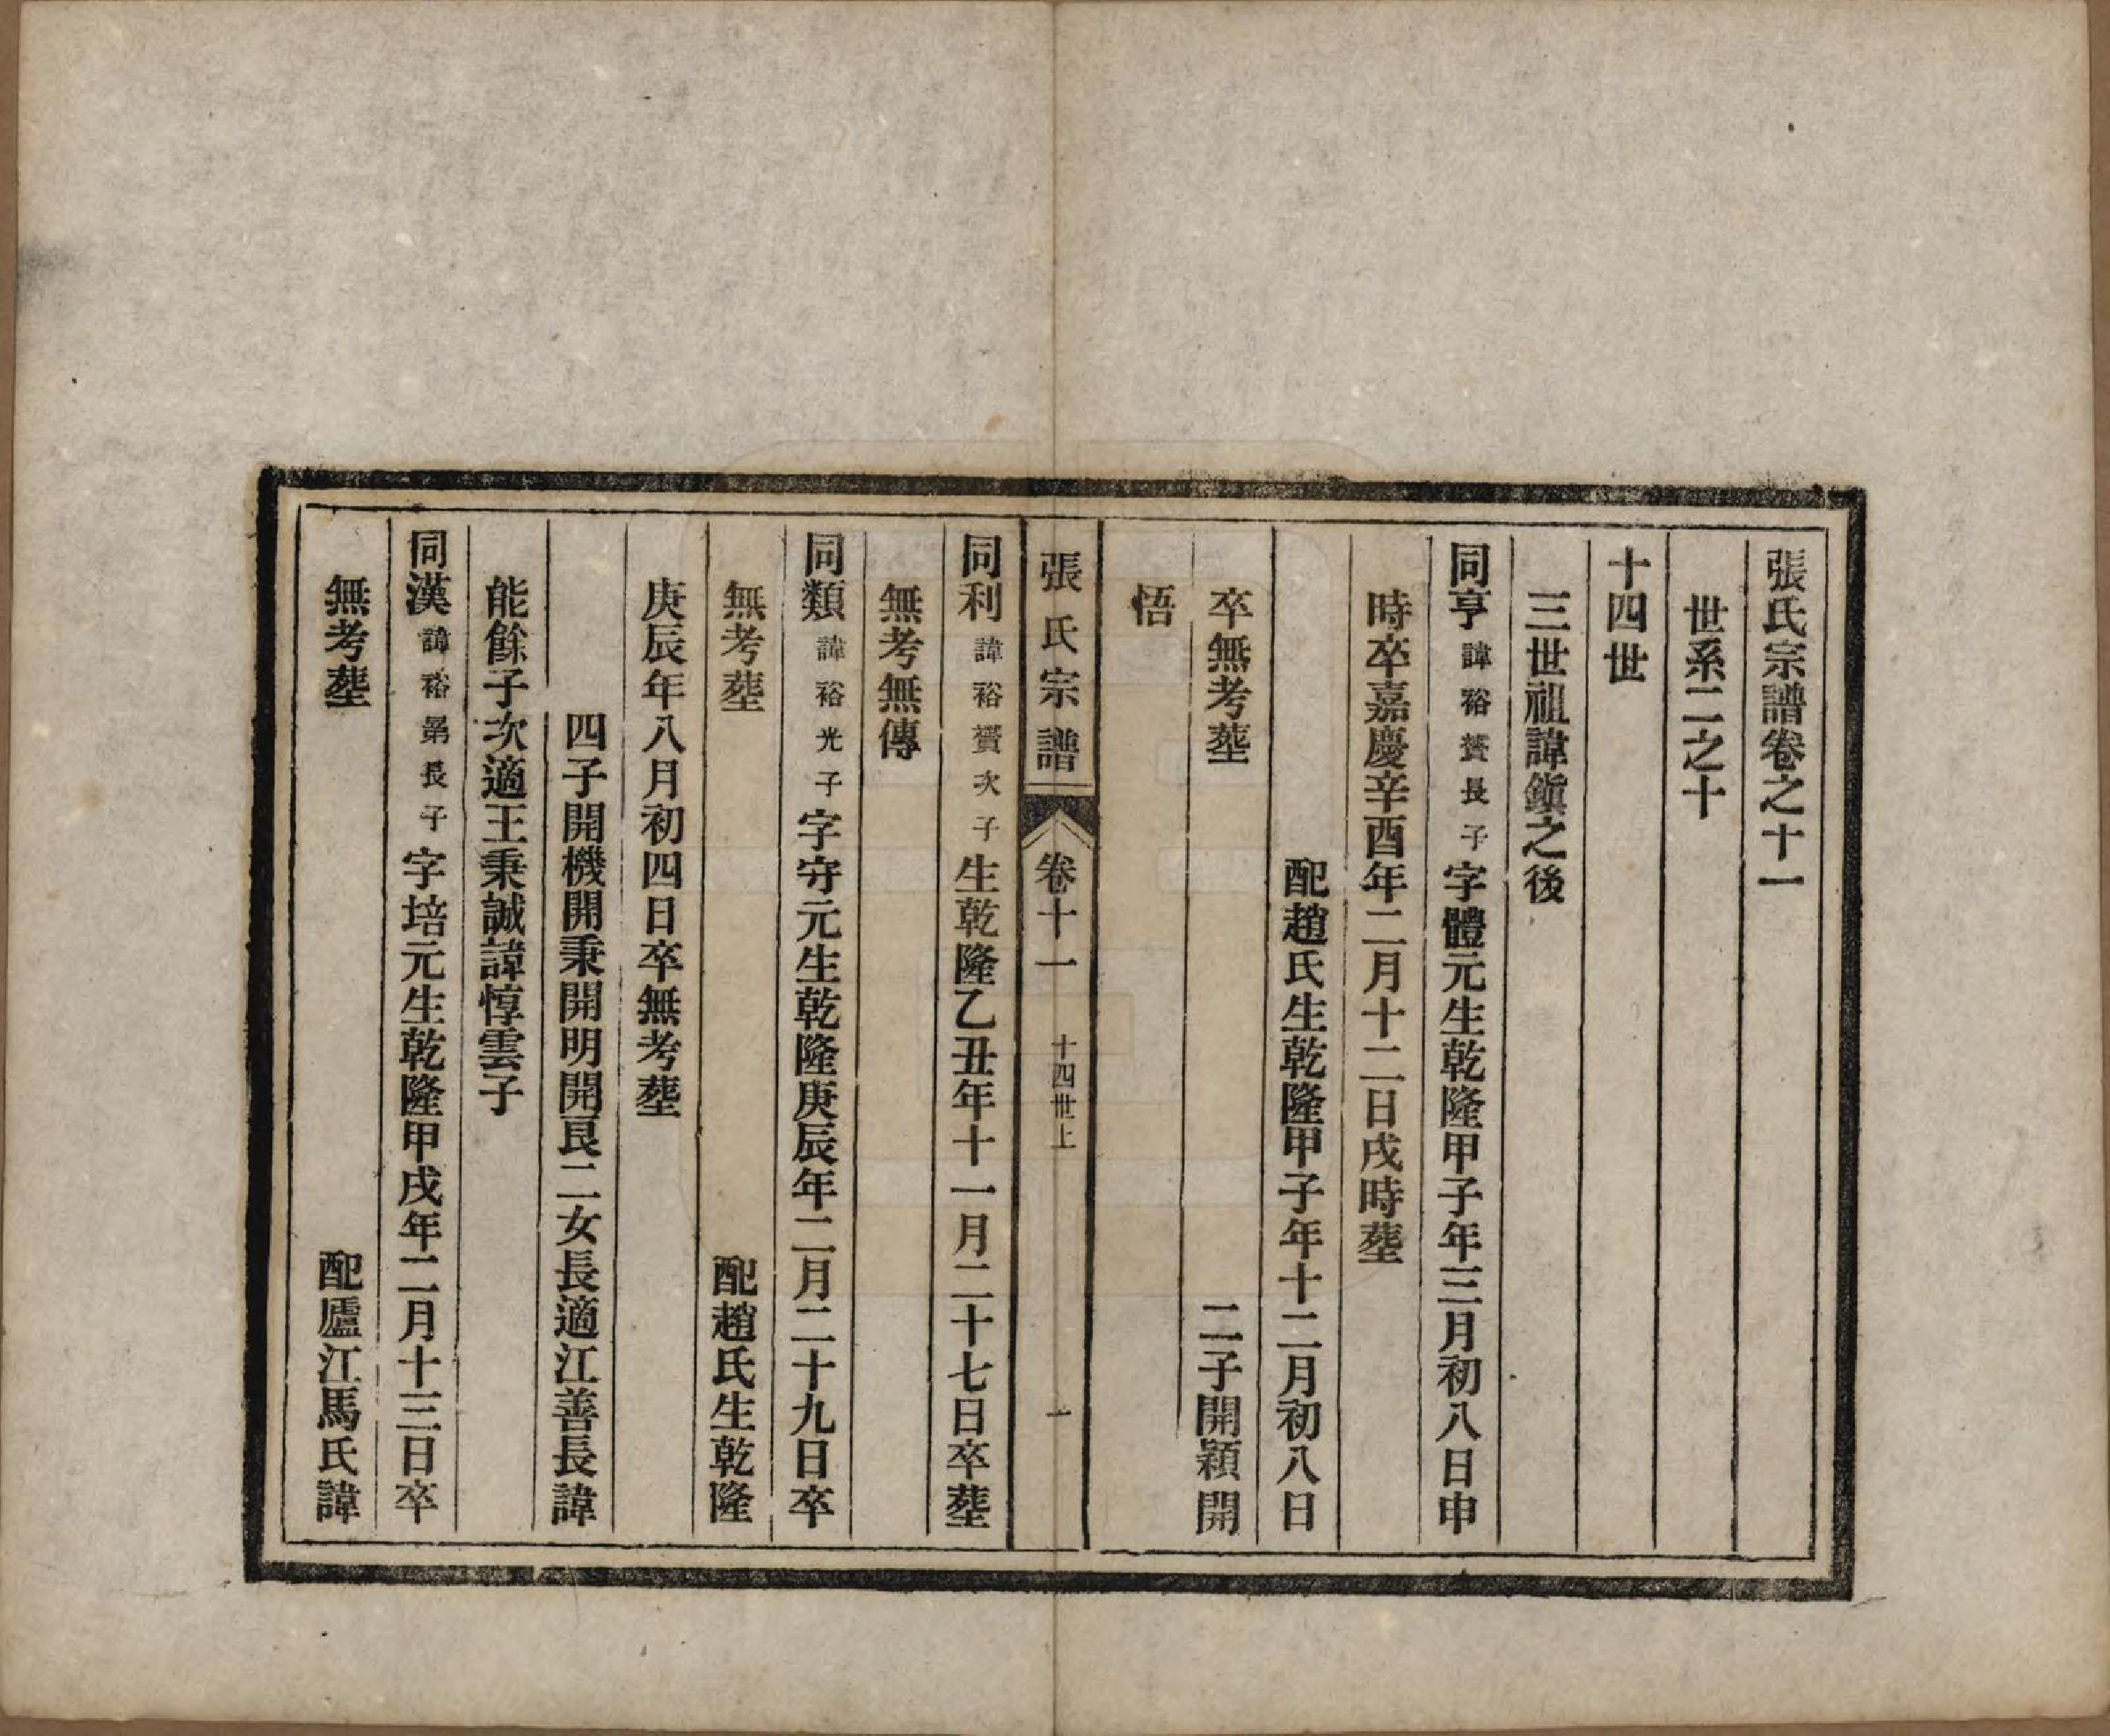 張氏宗譜卷之十一
世系二之十
十四世
三世祖諱鎮之後
同亨諱裕贇長子字體元生乾隆甲子年三月初八日申
時卒嘉慶辛酉年二月十二日戌時塟
配趙氏生乾隆甲子年十二月初八日
卒無考塟 二子開穎開
悟
張氏宗譜 卷十一 十四世上 一
同利諱裕贇次子生乾隆乙丑年十一月二十七日卒塟
無考無傳
同類諱裕光子字守元生乾隆庚辰年二月二十九日卒
無考塟 配趙氏生乾隆
庚辰年八月初四日卒無考塟
四子開機開秉開明開艮二女長適江善長諱
能餘子次適王秉誠諱惇雲子
同漢諱裕第長子字培元生乾隆甲戌年二月十三日卒
無考塟 配廬江馬氏諱